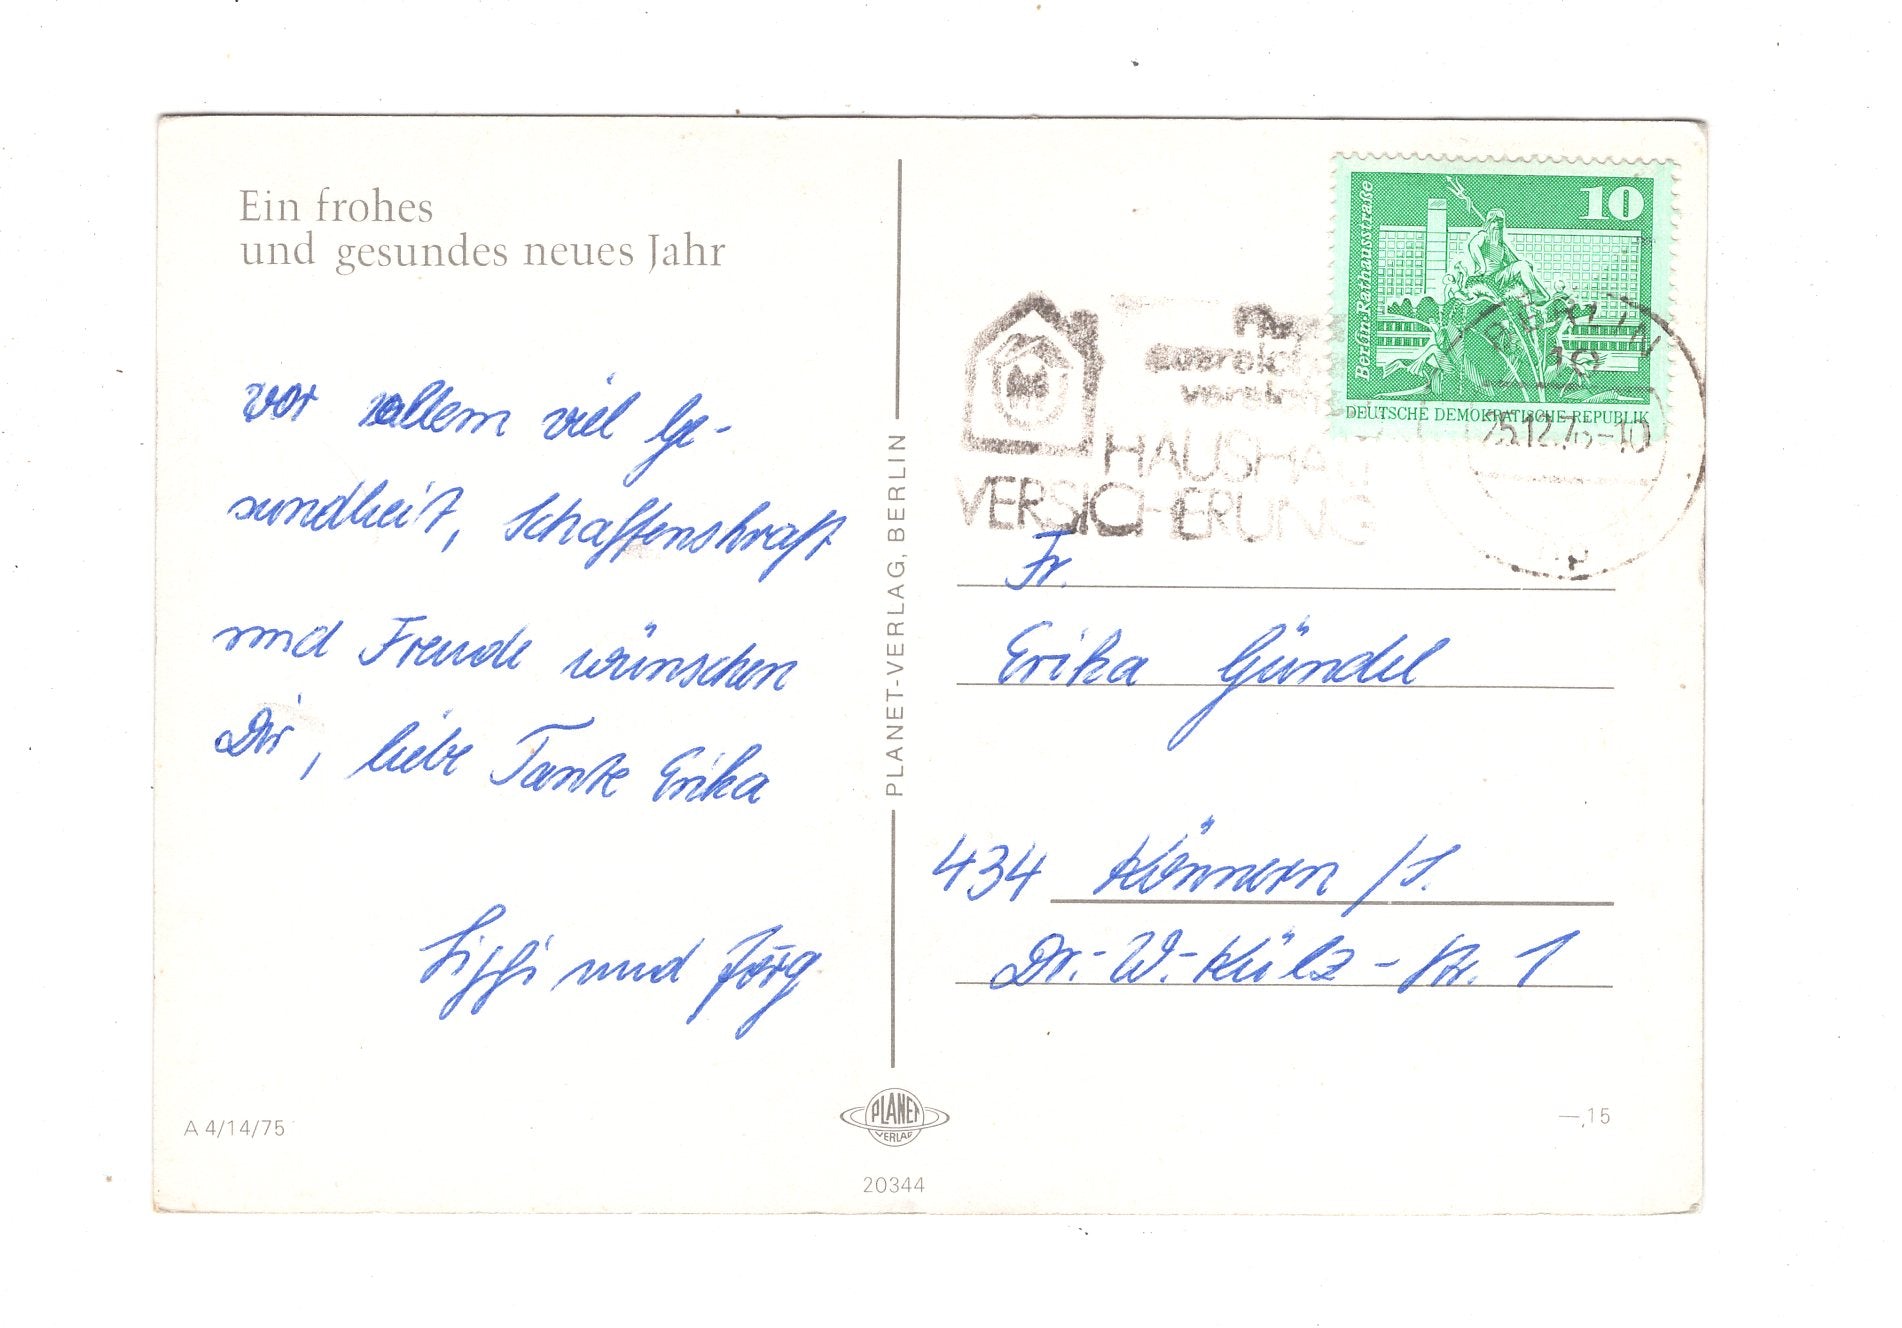 Ein frohes
und gesundes neues Jahr
vor allem viel Ge-
sundheit, Schaffenskraft
und Freude wünschen
Dir, liebe Tante Erika
Siggi und Jörg
A 4/14/75
PLANET-VERLAG, BERLIN
PLANET
VERLAG
20344
10
Berlin-Rathausstraße
DEUTSCHE DEMOKRATISCHE REPUBLIK
BERLIN
HAUSHALT
VERSICHERUNG
Fr.
Erika Gündel
434 Könnern /S.
Dr.-W.-Külz-Str. 1
—,15